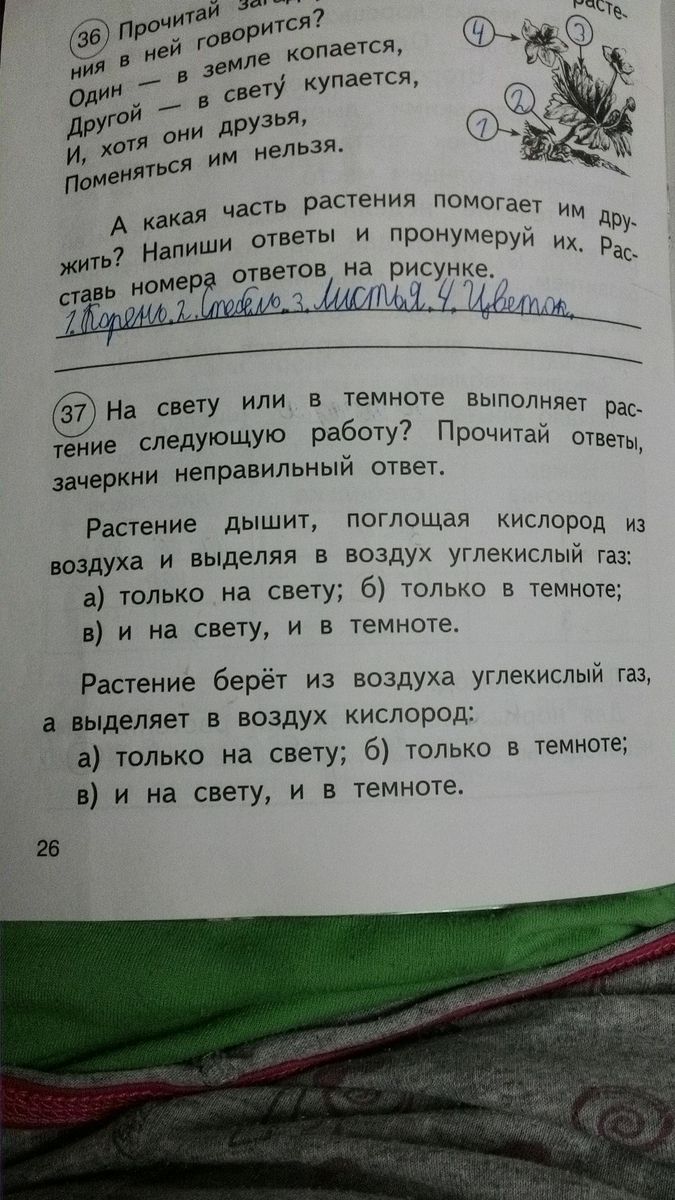 36 Прочитай
расте-
ния в ней говорится?
Один — в земле копается,
Другой — в свету́ купается,
И, хотя они друзья,
Поменяться им нельзя.
4
3
2
1
А какая часть растения помогает им дру-
жить? Напиши ответы и пронумеруй их. Рас-
ставь номера ответов на рисунке.
1. Корень. 2. Стебель. 3. Листья. 4. Цветок.
37 На свету или в темноте выполняет рас-
тение следующую работу? Прочитай ответы,
зачеркни неправильный ответ.
Растение дышит, поглощая кислород из
воздуха и выделяя в воздух углекислый газ:
а) только на свету; б) только в темноте;
в) и на свету, и в темноте.
Растение берёт из воздуха углекислый газ,
а выделяет в воздух кислород:
а) только на свету; б) только в темноте;
в) и на свету, и в темноте.
26